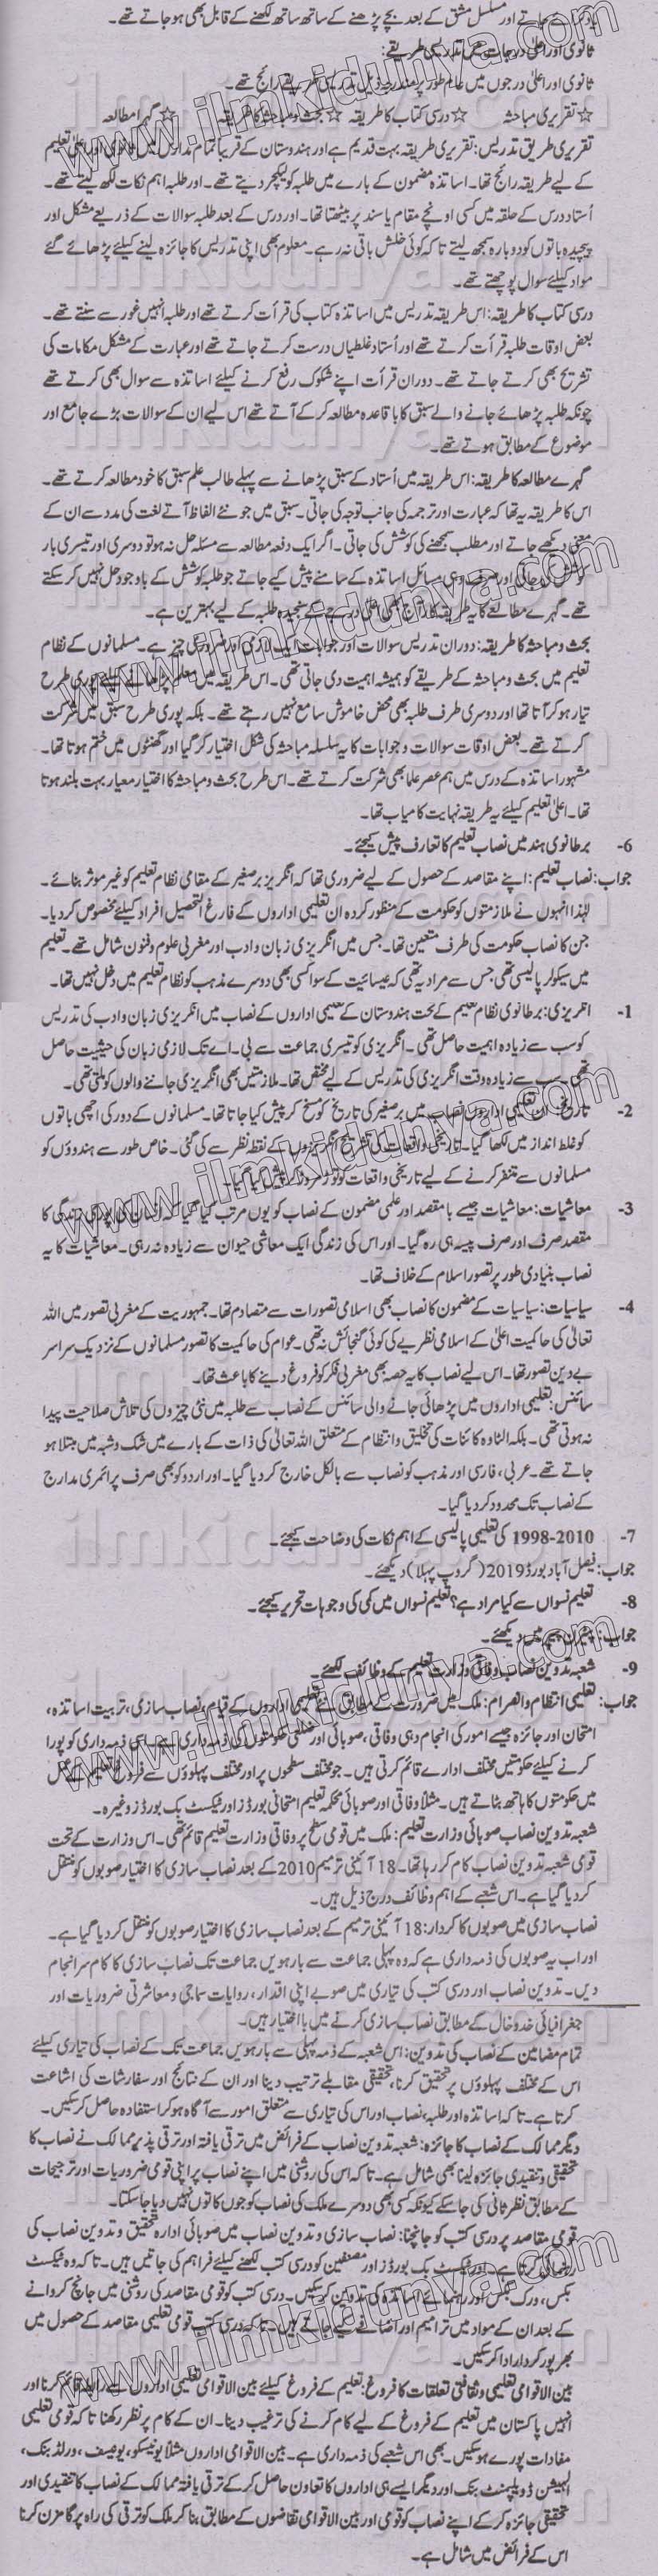 یاد کرائے جاتے اور مسلسل مشق کے بعد بچے پڑھنے کے ساتھ ساتھ لکھنے کے قابل بھی ہو جاتے تھے۔
ثانوی اور اعلیٰ درجات میں تدریسی طریقے:
ثانوی اور اعلیٰ درجوں میں عام طور پر مندرجہ ذیل تدریسی طریقے رائج تھے۔
☆ تقریری مباحثہ ☆ درسی کتاب کا طریقہ ☆ بحث و مباحثہ کا طریقہ ☆ گہرا مطالعہ
تقریری طریق تدریس: تقریری طریقہ بہت قدیم ہے اور ہندوستان کے قریباً تمام مدارس میں ثانوی اور اعلیٰ تعلیم
کے لیے طریقہ رائج تھا۔ اساتذہ مضمون کے بارے میں طلبہ کو لیکچر دیتے تھے۔ اور طلبہ اہم نکات لکھ لیتے تھے۔
اُستاد درس کے حلقہ میں کسی اونچے مقام یا سند پر بیٹھتا تھا۔ اور درس کے بعد طلبہ سوالات کے ذریعے مشکل اور
پیچیدہ باتوں کو دوبارہ سمجھ لیتے تاکہ کوئی خلش باقی نہ رہے۔ معلوم بھی اپنی تدریس کا جائزہ لینے کیلئے پڑھائے گئے
مواد کیلئے سوال پوچھتے تھے۔
درسی کتاب کا طریقہ: اس طریقہ تدریس میں اساتذہ کتاب کی قرأت کرتے تھے اور طلبہ انہیں غور سے سنتے تھے۔
بعض اوقات طلبہ قرأت کرتے تھے اور اُستاد غلطیاں درست کرتے جاتے تھے اور عبارت کے مشکل مکامات کی
تشریح بھی کرتے جاتے تھے۔ دوران قرأت اپنے شکوک رفع کرنے کیلئے اساتذہ سے سوال بھی کرتے تھے
چونکہ طلبہ پڑھائے جانے والے سبق کا باقاعدہ مطالعہ کر کے آتے تھے اس لیے ان کے سوالات بڑے جامع اور
موضوع کے مطابق ہوتے تھے۔
گہرے مطالعہ کا طریقہ: اس طریقہ میں اُستاد کے سبق پڑھانے سے پہلے طالب علم سبق کا خود مطالعہ کرتے تھے۔
اس کا طریقہ یہ تھا کہ عبارت اور ترجمہ کی جانب توجہ کی جاتی۔ سبق میں جو نئے الفاظ آتے لغت کی مدد سے ان کے
معنی دیکھے جاتے اور مطلب سمجھنے کی کوشش کی جاتی۔ اگر ایک دفعہ مطالعہ سے مسئلہ حل نہ ہو تو دوسری اور تیسری بار
کوشش کی جاتی اور صرف وہی مسائل اساتذہ کے سامنے پیش کیے جاتے جو طلبہ کوشش کے باوجود حل نہیں کر سکتے
تھے۔ گہرے مطالعے کا یہ طریقہ کار آج بھی اعلیٰ درجے کے سنجیدہ طلبہ کے لیے بہترین ہے۔
بحث و مباحثہ کا طریقہ: دوران تدریس سوالات اور جوابات ایک لازمی اور ضروری چیز ہے۔ مسلمانوں کے نظام
تعلیم میں بحث و مباحثہ کے طریقے کو ہمیشہ اہمیت دی جاتی تھی۔ اس طریقہ میں معلم پڑھانے کیلئے پوری طرح
تیار ہو کر آتا تھا اور دوسری طرف طلبہ بھی محض خاموش سامع نہیں رہتے تھے۔ بلکہ پوری طرح سبق میں شرکت
کرتے تھے۔ بعض اوقات سوالات و جوابات کا یہ سلسلہ مباحثہ کی شکل اختیار کر گیا اور گھنٹوں میں ختم ہوتا تھا۔
مشہور اساتذہ کے درس میں ہم عصر علما بھی شرکت کرتے تھے۔ اس طرح بحث و مباحثہ کا اختیار معیار بہت بلند ہوتا
تھا۔ اعلیٰ تعلیم کیلئے یہ طریقہ نہایت کامیاب تھا۔
6- برطانوی ہند میں نصاب تعلیم کا تعارف پیش کیجئے۔
جواب: نصاب تعلیم: اپنے مقاصد کے حصول کے لیے ضروری تھا کہ انگریز برصغیر کے مقامی نظام تعلیم کو غیر موثر بنائے۔
لہٰذا انہوں نے ملازمتوں کو حکومت کے منظور کردہ ان تعلیمی اداروں کے فارغ التحصیل افراد کیلئے مخصوص کر دیا۔
جن کا نصاب حکومت کی طرف متعین تھا۔ جس میں انگریزی زبان و ادب اور مغربی علوم و فنون شامل تھے۔ تعلیم
میں سیکولر پالیسی تھی جس سے مراد یہ تھی کہ عیسائیت کے سوا کسی بھی دوسرے مذہب کو نظام تعلیم میں دخل نہیں تھا۔
1- انگریزی: برطانوی نظام تعلیم کے تحت ہندوستان کے تعلیمی اداروں کے نصاب میں انگریزی زبان و ادب کی تدریس
کو سب سے زیادہ اہمیت حاصل تھی۔ انگریزی کو تیسری جماعت سے بی۔ اے تک لازمی زبان کی حیثیت حاصل
تھی۔ سب سے زیادہ وقت انگریزی کی تدریس کے لیے مختص تھا۔ ملازمتیں بھی انگریزی جاننے والوں کو ملتی تھی۔
2- تاریخ: ان تعلیمی اداروں نصاب میں برصغیر کی تاریخ کو مسخ کر پیش کیا جاتا تھا۔ مسلمانوں کے دور کی اچھی باتوں
کو غلط انداز میں لکھا گیا۔ تاریخی واقعات کی تشریح انگریزوں کے نقطہ نظر سے کی گئی۔ خاص طور سے ہندوؤں کو
مسلمانوں سے متنفر کرنے کے لیے تاریخی واقعات کو توڑ مروڑ کر پیش کیا گیا۔
3- معاشیات: معاشیات جیسے بامقصد اور علمی مضمون کے نصاب کو یوں مرتب کیا گیا کہ انسان کی پوری زندگی کا
مقصد صرف اور صرف پیسہ ہی رہ گیا۔ اور اس کی زندگی ایک معاشی حیوان سے زیادہ نہ رہی۔ معاشیات کا یہ
نصاب بنیادی طور پر تصور اسلام کے خلاف تھا۔
4- سیاسیات: سیاسیات کے مضمون کا نصاب بھی اسلامی تصورات سے متصادم تھا۔ جمہوریت کے مغربی تصور میں اللہ
تعالیٰ کی حاکمیت اعلیٰ کے اسلامی نظریے کی کوئی گنجائش نہ تھی۔ عوام کی حاکمیت کا تصور مسلمانوں کے نزدیک سراسر
بے دین تصور تھا۔ اس لیے نصاب کا یہ حصہ بھی مغربی فکر کو فروغ دینے کا باعث تھا۔
سائنس: تعلیمی اداروں میں پڑھائی جانے والی سائنس کے نصاب سے طلبہ میں نئی چیزوں کی تلاش صلاحیت پیدا
نہ ہوتی تھی۔ بلکہ الٹا وہ کائنات کی تخلیق و انتظام کے متعلق اللہ تعالیٰ کی ذات کے بارے میں شک و شبہ میں مبتلا ہو
جاتے تھے۔ عربی، فارسی اور مذہب کو نصاب سے بالکل خارج کر دیا گیا۔ اور اردو کو بھی صرف پرائمری مدارج
کے نصاب تک محدود کر دیا گیا۔
7- 1998-2010 کی تعلیمی پالیسی کے اہم نکات کی وضاحت کیجئے۔
جواب: فیصل آباد بورڈ 2019 (گروپ پہلا) دیکھئے۔
8- تعلیم نسواں سے کیا مراد ہے؟ تعلیم نسواں میں کمی کی وجوہات تحریر کیجئے۔
جواب: پیٹرن پیپر میں دیکھئے۔
9- شعبہ تدوین نصاب وفاقی وزارت تعلیم کے وظائف لکھئے۔
جواب: تعلیمی انتظام والعرام: ملک میں ضرورت کے مطابق نئے تعلیمی اداروں کے قیام، نصاب سازی، تربیت اساتذہ،
امتحان اور جائزہ جیسے امور کی انجام دہی وفاقی، صوبائی اور ضلعی حکومتوں کی ذمہ داری ہے۔ اس ذمہ داری کو پورا
کرنے کیلئے حکومتیں مختلف ادارے قائم کرتی ہیں۔ جو مختلف سطحوں پر اور مختلف پہلوؤں سے فروغ تعلیم کے عمل
میں حکومتوں کا ہاتھ بٹاتے ہیں۔ مثلاً وفاقی اور صوبائی محکمہ تعلیم امتحانی بورڈز اور ٹیکسٹ بک بورڈز وغیرہ۔
شعبہ تدوین نصاب صوبائی وزارت تعلیم: ملک میں قومی سطح پر وفاقی وزارت تعلیم قائم تھی۔ اس وزارت کے تحت
قومی شعبہ تدوین نصاب کام کر رہا تھا۔ 18 آئینی ترمیم 2010 کے بعد نصاب سازی کا اختیار صوبوں کو منتقل
کر دیا گیا ہے۔ اس شعبے کے اہم وظائف درج ذیل ہیں۔
نصاب سازی میں صوبوں کا کردار: 18 آئینی ترمیم کے بعد نصاب سازی کا اختیار صوبوں کو منتقل کر دیا گیا ہے۔
اور اب یہ صوبوں کی ذمہ داری ہے کہ وہ پہلی جماعت سے بارہویں جماعت تک نصاب سازی کا کام سرانجام
دیں۔ تدوین نصاب اور درسی کتب کی تیاری میں صوبے اپنی اقدار، روایات سماجی و معاشرتی ضروریات اور
جغرافیائی خدوخال کے مطابق نصاب سازی کرنے میں با اختیار ہیں۔
تمام مضامین کے نصاب کی تدوین: اس شعبہ کے ذمہ پہلی سے بارہویں جماعت تک کے نصاب کی تیاری کیلئے
اس کے مختلف پہلوؤں پر تحقیق کرنا، تحقیقی مقابلے ترتیب دینا اور ان کے نتائج اور سفارشات کی اشاعت
کرتا ہے۔ تاکہ اساتذہ اور طلبہ، نصاب اور اس کی تیاری سے متعلق امور سے آگاہ ہو کر استفادہ حاصل کر سکیں۔
دیگر ممالک کے نصاب کا جائزہ: شعبہ تدوین نصاب کے فرائض میں ترقی یافتہ اور ترقی پذیر ممالک نے نصاب کا
تحقیقی و تنقیدی جائزہ لینا بھی شامل ہے۔ تاکہ اس کی روشنی میں اپنے نصاب پر اپنی قومی ضروریات اور ترجیحات
کے مطابق نظرثانی کی جا سکے کیونکہ کسی بھی دوسرے ملک کی نصاب کو جوں کا توں نہیں دیا جا سکتا۔
قومی مقاصد پر درسی کتب کو جانچنا: نصاب سازی و تدوین نصاب میں صوبائی ادارہ تحقیق و تدوین نصاب کی
رہنمائی کرتا ہے۔ اور ٹیکسٹ بک بورڈز اور مصنفین کو درسی کتب لکھنے کیلئے فراہم کی جاتیں ہیں۔ تاکہ وہ ٹیکسٹ
بکس، ورک بکس اور رہنمائے اساتذہ کی تدوین کر سکیں۔ درسی کتب کو قومی مقاصد کی روشنی میں جانچ کروانے
کے بعد ان کے مواد میں ترامیم اور اضافے کیے جاتے ہیں۔ تاکہ درسی کتب قومی تعلیمی مقاصد کے حصول میں
بھرپور کردار ادا کر سکیں۔
بین الاقوامی تعلیمی و ثقافتی تعلقات کا فروغ: تعلیم کے فروغ کیلئے بین الاقوامی تعلیمی اداروں سے رابطہ قائم کرنا اور
انہیں پاکستان میں تعلیم کے فروغ کے لیے کام کرنے کی ترغیب دینا۔ ان کے کام پر نظر رکھنا تاکہ قومی تعلیمی
مفادات پورے ہو سکیں۔ بھی اس شعبے کی ذمہ داری ہے۔ بین الاقوامی اداروں مثلاً یونیسکو، یونیسف، ورلڈ بنک،
ایشین ڈویلپمنٹ بنک اور دیگر ایسے ہی اداروں کا تعاون حاصل کر کے ترقی یافتہ ممالک کے نصاب کا تنقیدی اور
تحقیقی جائزہ کر کے اپنے نصاب کو قومی اور بین الاقوامی تقاضوں کے مطابق بنا کر ملک کو ترقی کی راہ پر گامزن کرنا
اس کے فرائض میں شامل ہے۔